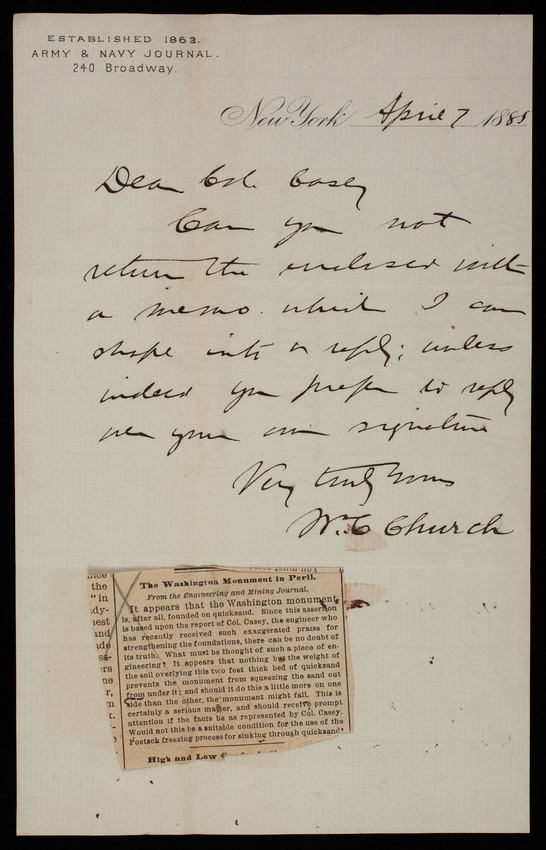 ESTABLISHED 1863.
ARMY & NAVY JOURNAL.
240 Broadway.
New York April 7 1885
Dear Col. Casey
Can you not
return the enclosed with
a memo. which I can
shape into a reply; unless
indeed you prefer to reply
over your own signature
Very truly Yours
W. C. Church
The Washington Monument in Peril.
From the Engineering and Mining Journal.
It appears that the Washington monument
is, after all, founded on quicksand. Since this assertion
is based upon the report of Col. Casey, the engineer who
has recently received such exaggerated praise for
strengthening the foundations, there can be no doubt of
its truth. What must be thought of such a piece of en-
gineering? It appears that nothing but the weight of
the soil overlying this two feet thick bed of quicksand
prevents the monument from squeezing the sand out
from under it; and should it do this a little more on one
side than the other, the monument might fall. This is
certainly a serious matter, and should receive prompt
attention if the facts be as represented by Col. Casey.
Would not this be a suitable condition for the use of the
Poetsch freezing process for sinking through quicksand?
High and Low